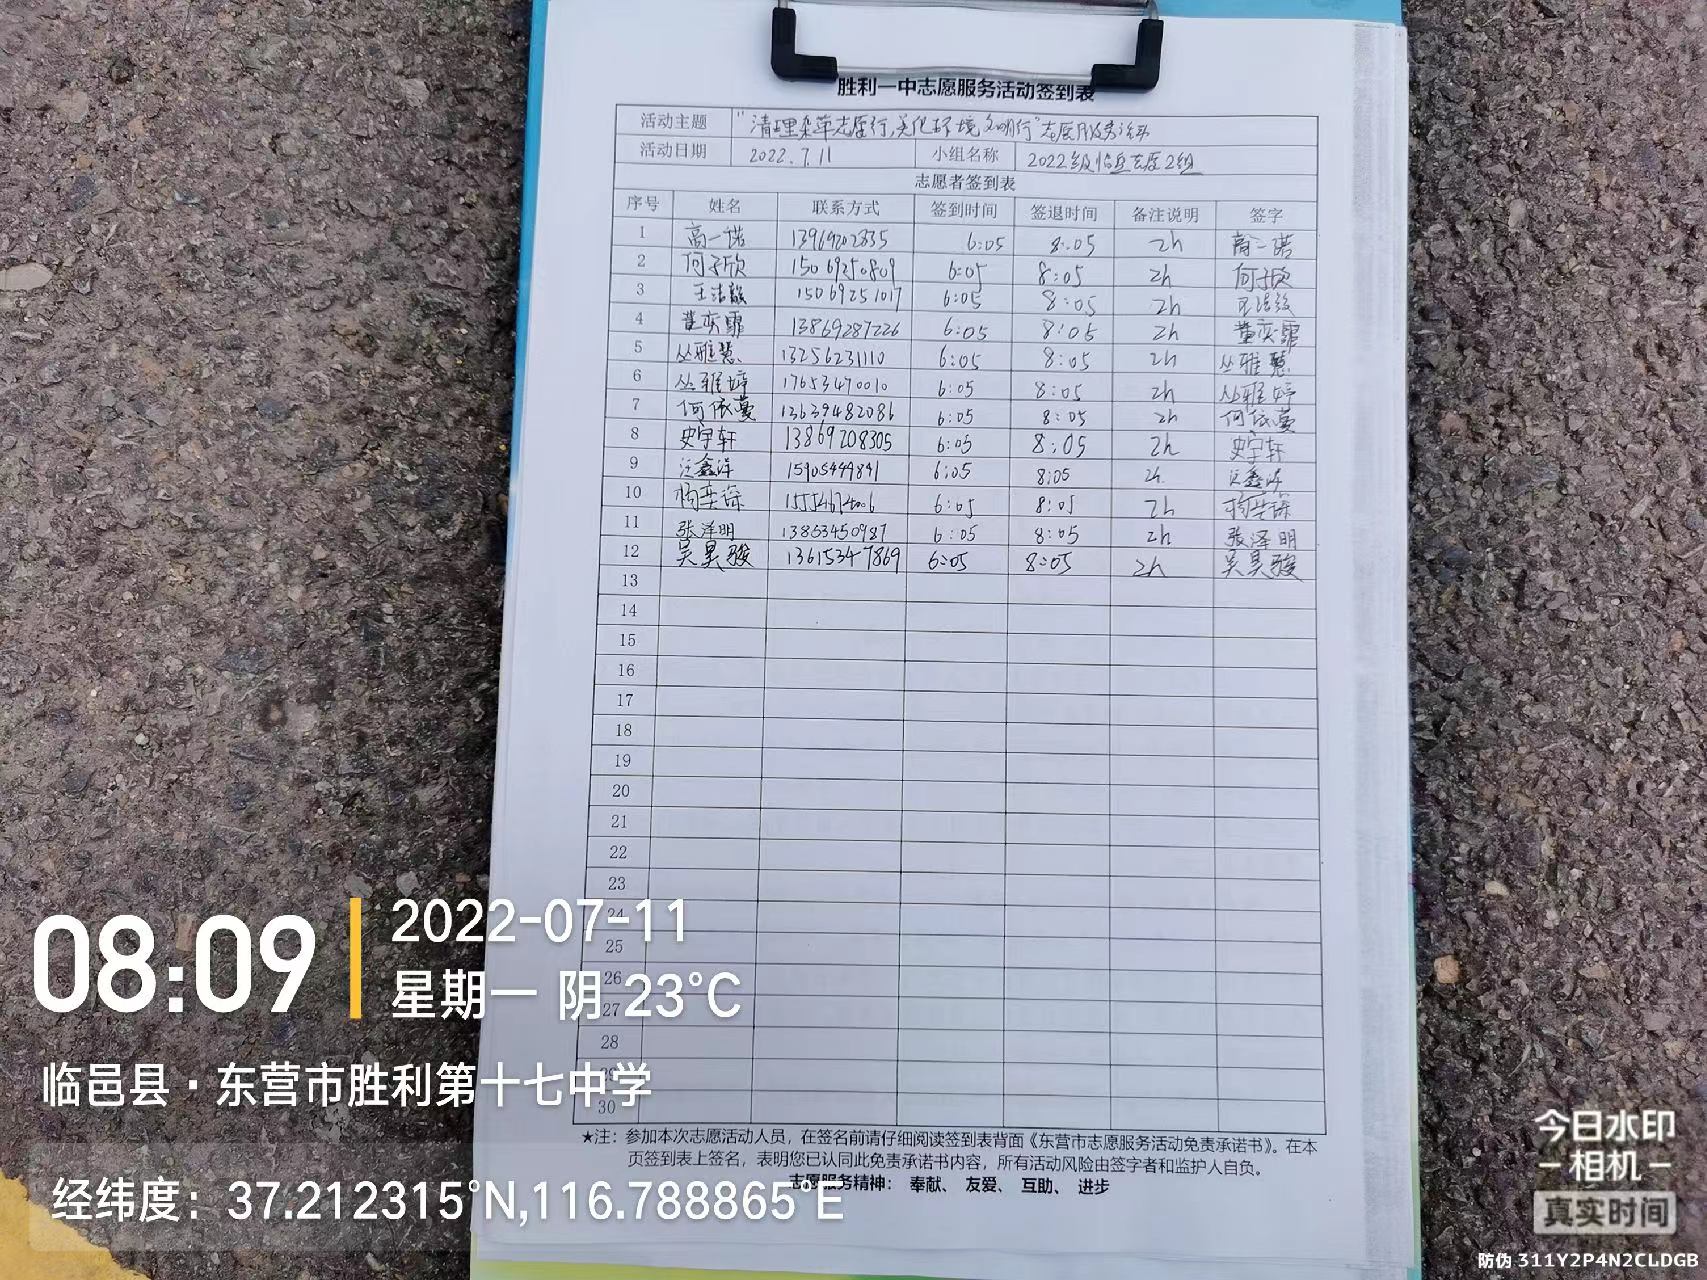 胜利一中志愿服务活动签到表
活动主题 "清理杂草志愿行,美化环境文明行"志愿服务活动
活动日期 2022.7.11 小组名称 2022级临邑志愿2组
志愿者签到表
序号 姓名 联系方式 签到时间 签退时间 备注说明 签字
1 高一诺 13969202835 6:05 8:05 2h 高一诺
2 何子欣 15069250809 6:05 8:05 2h 何子欣
3 王洁 15069251017 6:05 8:05 2h 王洁
4 董奕霏 13869287226 6:05 8:05 2h 董奕霏
5 丛雅慧 13256231110 6:05 8:05 2h 丛雅慧
6 丛雅婷 17653470010 6:05 8:05 2h 丛雅婷
7 何依蔓 13639482086 6:05 8:05 2h 何依蔓
8 史宇轩 13869208305 6:05 8:05 2h 史宇轩
9 鑫洋 15905449841 6:05 8:05 2h 鑫洋
10 杨奕 6:05 8:05 2h 杨奕
11 张泽明 13853450987 6:05 8:05 2h 张泽明
12 吴昊骏 13615347869 6:05 8:05 2h 吴昊骏
13
14
15
16
17
18
19
20
21
22
23
24
25
26
27
28
29
30
★注：参加本次志愿活动人员，在签名前请仔细阅读签到表背面《东营市志愿服务活动免责承诺书》。在本
页签到表上签名，表明您已认同此免责承诺书内容，所有活动风险由签字者和监护人自负。
志愿服务精神： 奉献、 友爱、 互助、 进步
08:09
2022-07-11
星期一 阴 23℃
临邑县·东营市胜利第十七中学
经纬度：37.212315°N,116.788865°E
今日水印
相机
真实时间
防伪 311Y2P4N2CLDGB